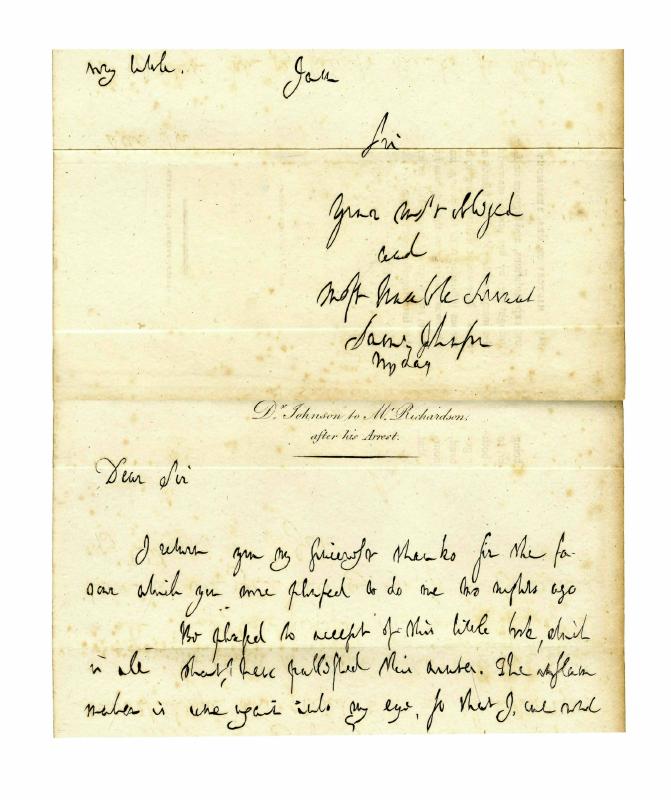 very little. I am
Sir
Your most obliged
and
most humble Servant
Sam: Johnson
Dr. Johnson to Mr. Richardson,
after his Arrest.
Dear Sir
I return you my sincerest thanks for the fa-
vour which you were pleased to do me two nights ago
Be pleased to accept of this little book, which
is all that I have published this winter. The inflam
mation is come again into my eye, so that I can